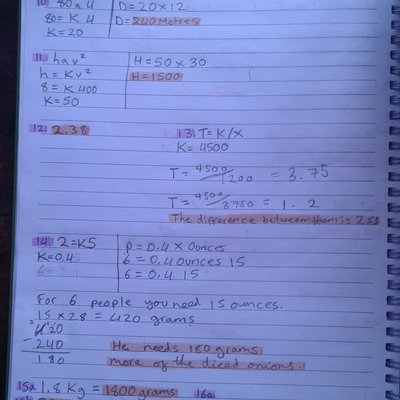 10. 80 a 4 D = 20 x 12
80 = K 4 D = 240 Metres
K = 20
11. h a v² H = 50 x 30
h = Kv² H = 1500
8 = K 400
K = 50
12. 2.38 13. T = K/X
K = 4500
T = 4500/1200 = 3.75
T = 4500/3750 = 1.2
The difference between them is 2.55
14. 2 = K5 P = 0.4 x Ounces
K = 0.4 6 = 0.4 ounces 15
6 = 0.4 15
For 6 people you need 15 ounces.
15 x 28 = 420 grams
420
- 240 He needs 180 grams
180 more of the diced onions.
15a 1.8 Kg = 1800 grams 16a